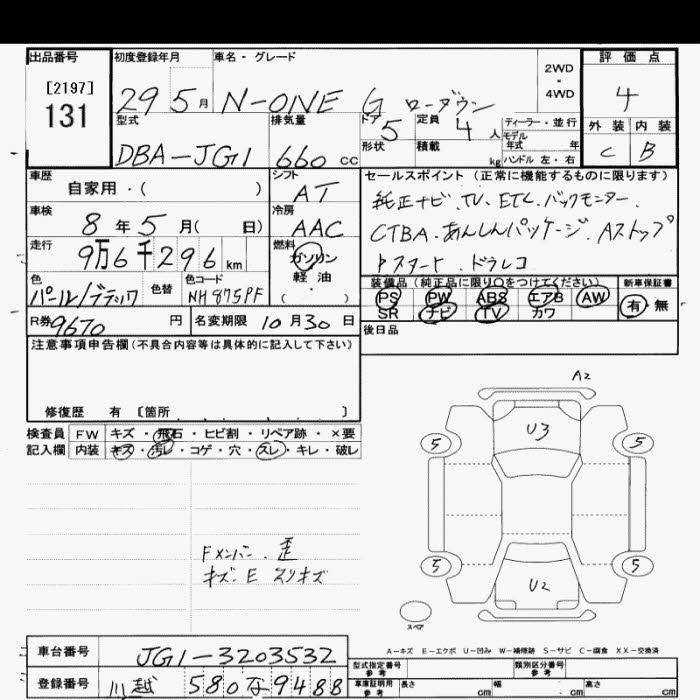 出品番号 初度登録年月 車名・グレード 2WD・4WD 評価点
[2197]
131
29 5月 N-ONE G ローダウン 4
型式 排気量 ドア 5 定員 4人 ディーラー・並行 外装 内装
モデル年式 年
DBA-JG1 660cc 形状 積載 kg ハンドル 左・右 C B
車歴 シフト セールスポイント(正常に機能するものに限ります)
自家用・( ) AT 純正ナビ.TV.ETC.バックモニター.
車検 冷房
8年5月( 日) AAC CTBA.あんしんパッケージ.Aストップ
走行 燃料
9万6千296km ガソリン・軽油 ドラレコ
色 色替 色コード ( ・ ) 装備品(純正品に限り○をつけてください) 新車保証書
パール/ブラック NH875PF PS PW ABS エアB AW 有・無
SR ナビ TV カワ
R券 9670円 名変期限 10月30日 後日品
注意事項申告欄(不具合内容等は具体的に記入して下さい)
修復歴 有 [箇所 ]
検査員記入欄 FW キズ・飛石・ヒビ割・リペア跡・×要
内装 キズ・汚レ・コゲ・穴・スレ・キレ・破レ
A2
U3
5 5
5 5
U2
スペア
Fメンバー.歪
キズ.E スリキズ
A-キズ E-エクボ U-凹み W-補修跡 S-サビ C-腐食 XX-交換済
車台番号 JG1-3203532
型式指定番号 参考 類別区分番号 参考
登録番号 川越 580 な 9488
車庫証明用 参考 長さ cm 幅 cm 高さ cm